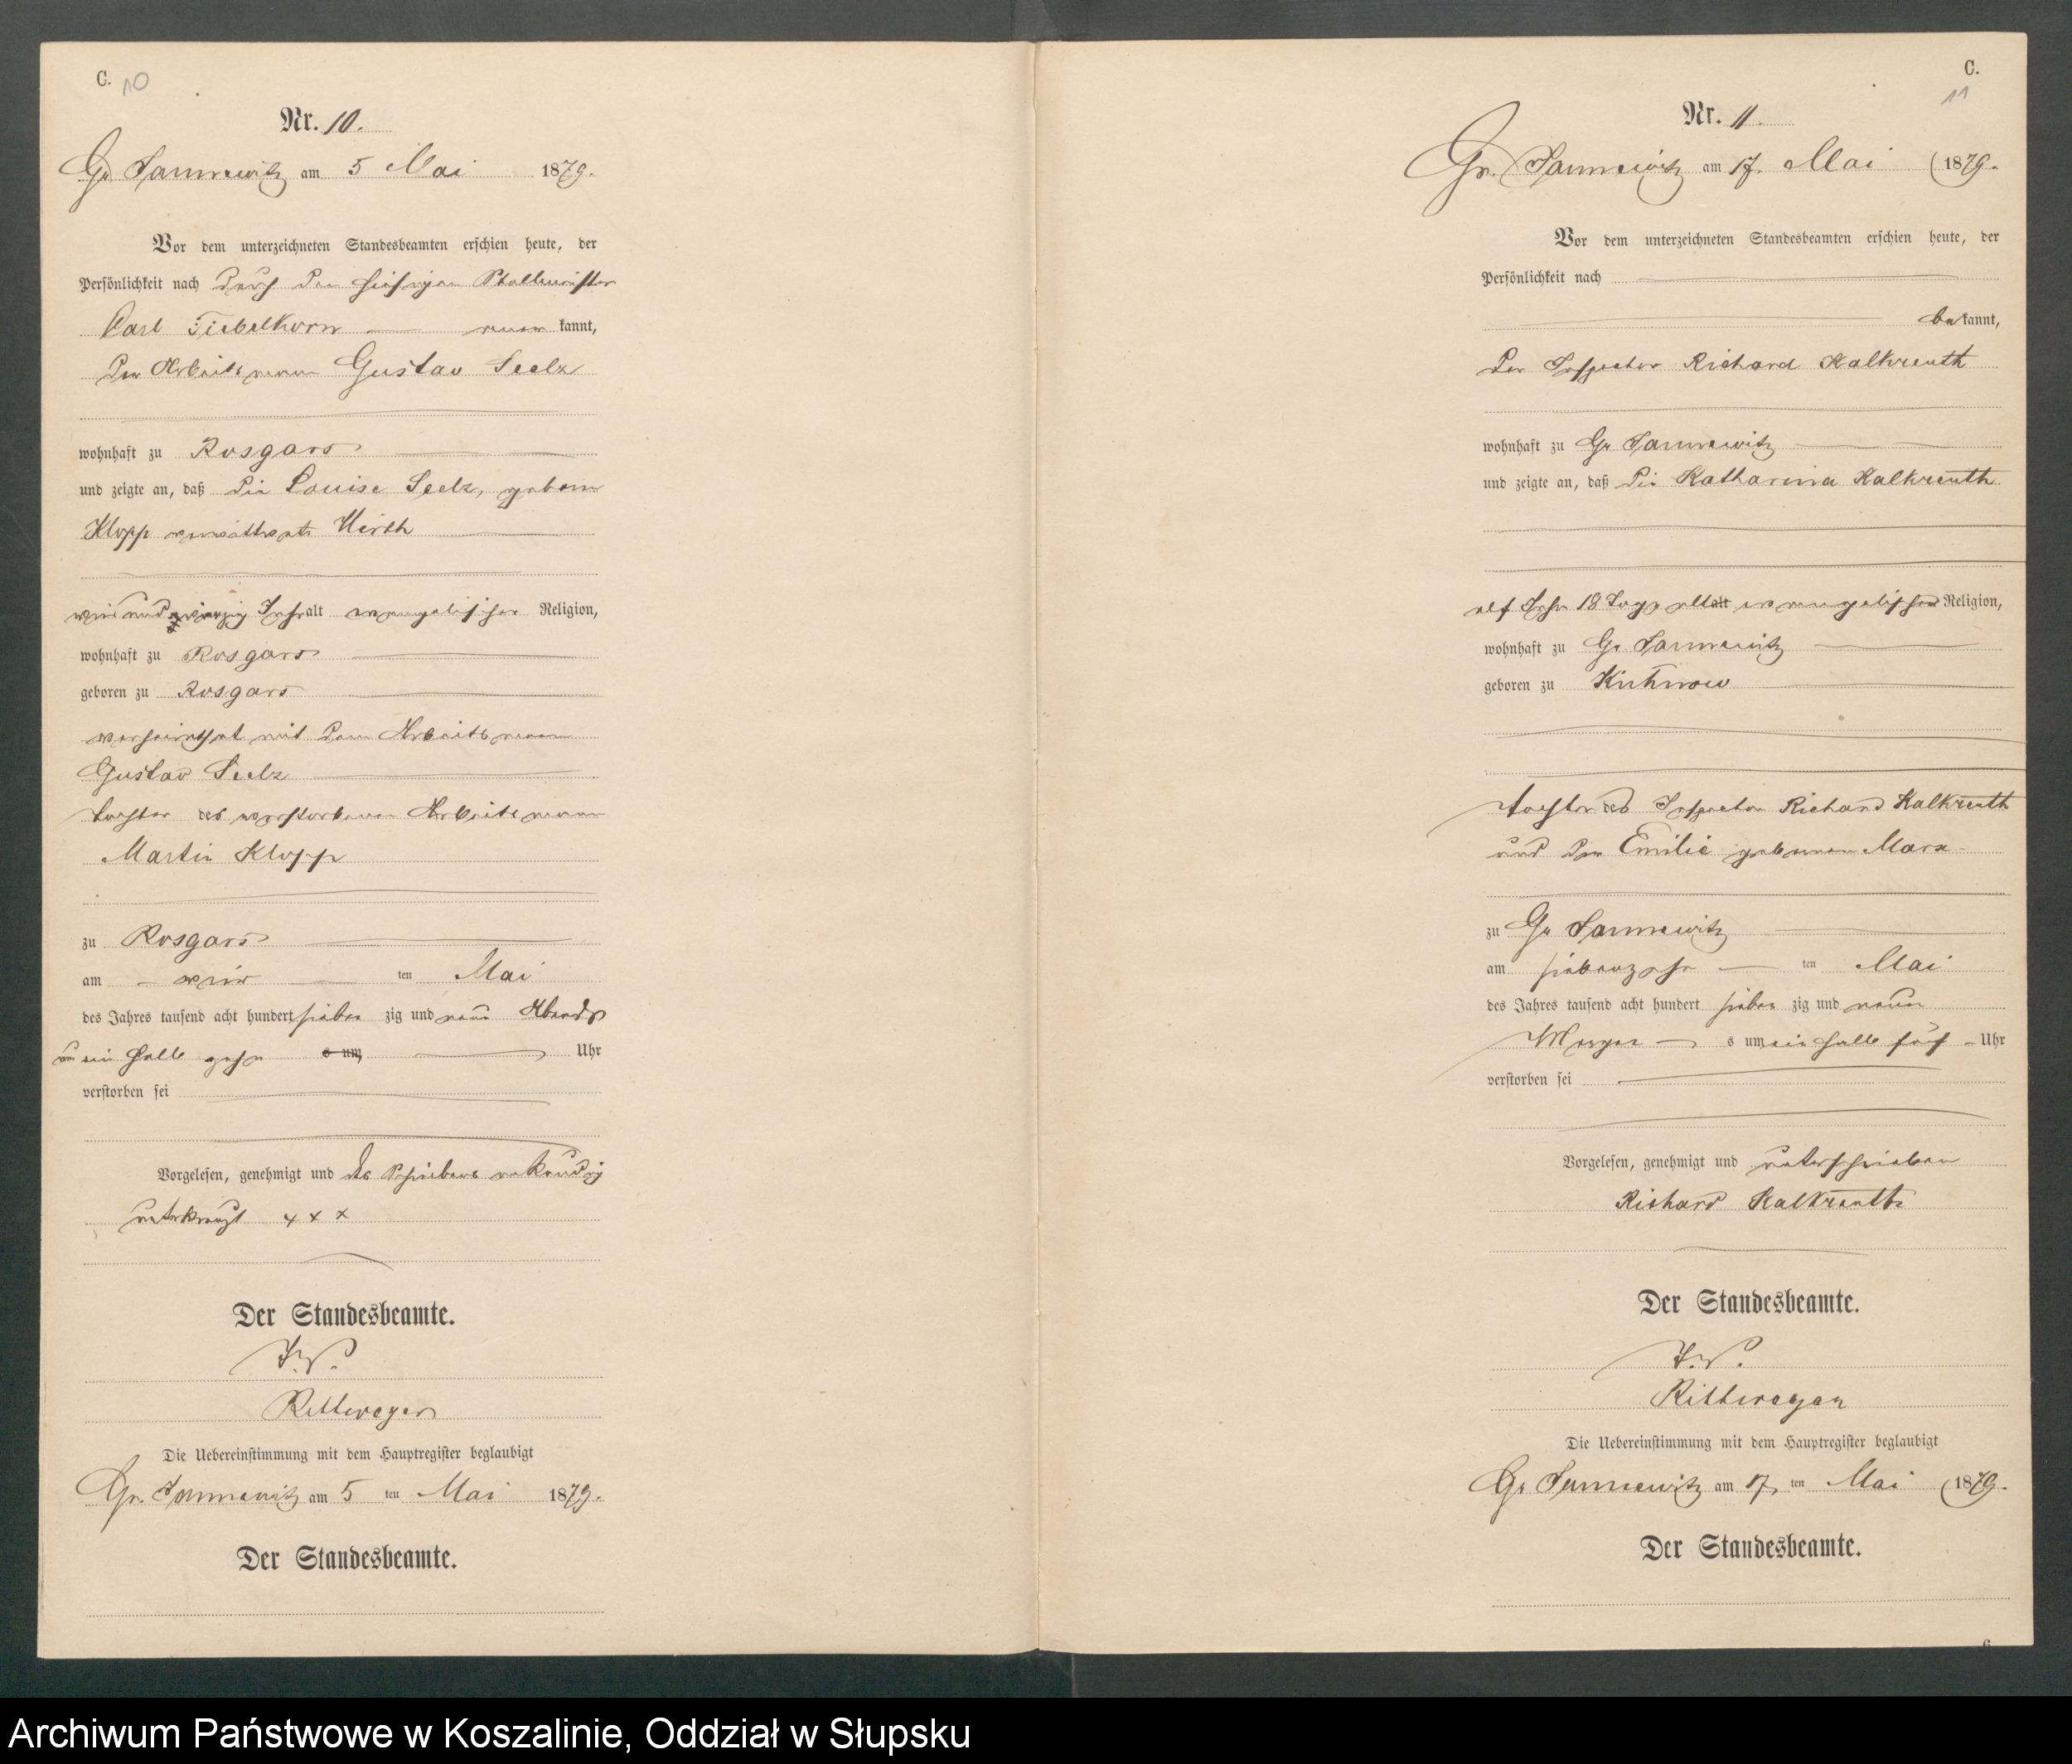 C. 10
Nr. 10.
Gr Jannewitz am 5 Mai 1879.
Vor dem unterzeichneten Standesbeamten erschien heute, der
Persönlichkeit nach durch den hiesigen Stallmeister
Carl Fiebelkorn kannt,
der Arbeitsmann Gustav Seelz
wohnhaft zu Rosgars
und zeigte an, daß die Louise Seelz, geborne
Klopp verwittwete Wirth
vierzig Jahr alt evangelischer Religion,
wohnhaft zu Rosgars
geboren zu Rosgars
verheirathet mit dem Arbeitsmann
Gustav Seelz
Tochter des verstorbenen Arbeitsmann
Martin Klopp
zu Rosgars
am – vier ten Mai
des Jahres tausend acht hundert sieben zig und neun Abends
um ein halb zehn s um Uhr
verstorben sei
Vorgelesen, genehmigt und des Schreibens unkundig
unterkreuzt x x x
Der Standesbeamte.
J.V.
Rittwegen
Die Uebereinstimmung mit dem Hauptregister beglaubigt
Gr. Jannewitz am 5 ten Mai 1879.
Der Standesbeamte.
C.
11
Nr. 11.
Gr. Jannewitz am 17. Mai 1879.
Vor dem unterzeichneten Standesbeamten erschien heute, der
Persönlichkeit nach
bekannt,
der Inspector Richard Kalkreuth
wohnhaft zu Gr Jannewitz
und zeigte an, daß die Katharina Kalkreuth
elf Jahr 18 Tage alt alt evangelischer Religion,
wohnhaft zu Gr. Jannewitz
geboren zu
Tochter des Inspector Richard Kalkreuth
und der Emilie gebornen Marx
zu Gr Jannewitz
am siebenzehn ten Mai
des Jahres tausend acht hundert sieben zig und neun
Morgen s um ein halb fünf Uhr
verstorben sei
Vorgelesen, genehmigt und unterschrieben
Richard Kalkreuth
Der Standesbeamte.
J.V.
Rittwegen
Die Uebereinstimmung mit dem Hauptregister beglaubigt
Gr Jannewitz am 17 ten Mai 1879.
Der Standesbeamte.
Archiwum Państwowe w Koszalinie, Oddział w Słupsku